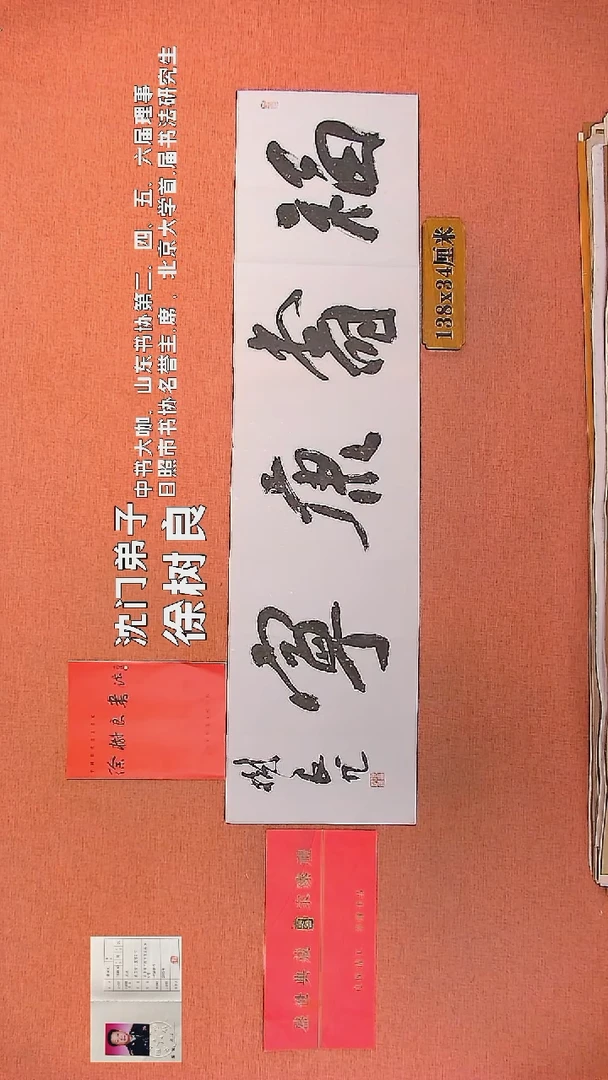 沈门弟子
徐树良
中书大咖、山东书协第二、四、五、六届理事
日照市书协名誉主席、北京大学首届书法研究生
徐樹良書法
福壽康寧
樹良
138x34厘米